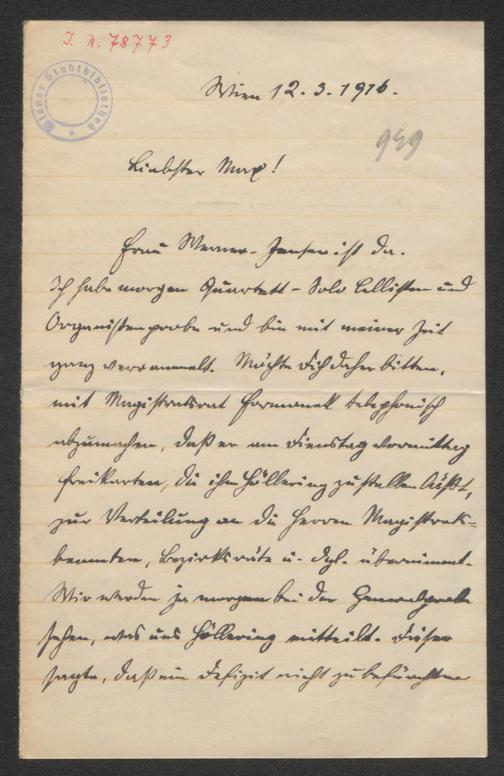 I. N. 78773
Wiener Stadtbibliothek
Wien 12. 3. 1916.
939
Liebster Max!
Frau Werner-Jensen ist da.
Ich habe morgen Quartett- Solo Cellisten und
Organistenprobe und bin mit meiner Zeit
ganz verrammelt. Möchte Dich daher bitten,
mit Magistratsrat Formanek telephonisch
abzumachen, daß er am Dienstag vormittag
Freikarten, die ihm Höllering zustellen läßt,
zur Verteilung an die Herren Magistrats=
beamten, Bezirksräte u. dgl. übernimmt.
Wir werden ja morgen bei der Generalprobe
sehen, was uns Höllering mitteilt. Dieser
sagte, daß ein Defizit nicht zu befürchten